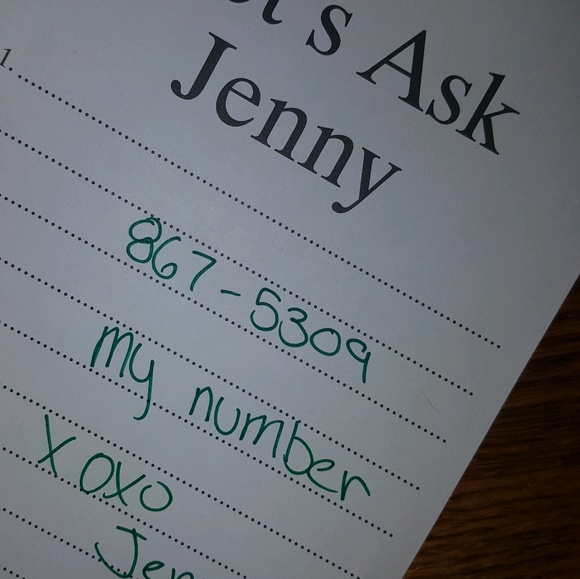 's Ask
Jenny
1.
867-5309
my number
xoxo
Jen